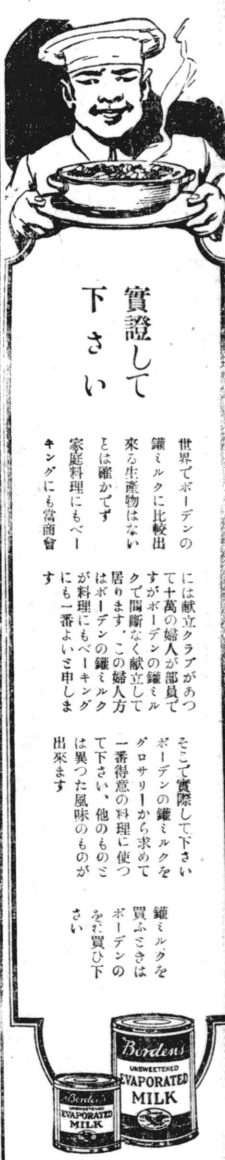 實證して
下さい
世界でボーデンの
鑵ミルクに比較出
來る生産物はない
とは確かです
家庭料理にもベー
キングにも當商會
には献立クラブがあつ
て十萬の婦人が部員で
すがボーデンの鑵ミル
クで間斷なく献立して
居ります、この婦人方
はボーデンの鑵ミルク
が料理にもベーキング
にも一番よいと申しま
す
そこで實際して下さい
ボーデンの鑵ミルクを
グロサリーから求めて
一番得意の料理に使つ
て下さい、他のものと
は異つた風味のものが
出來ます
鑵ミルクを
買ふときは
ボーデンの
をお買ひ下
さい
Borden's
UNSWEETENED
EVAPORATED
MILK
Borden's
UNSWEETENED
EVAPORATED
MILK